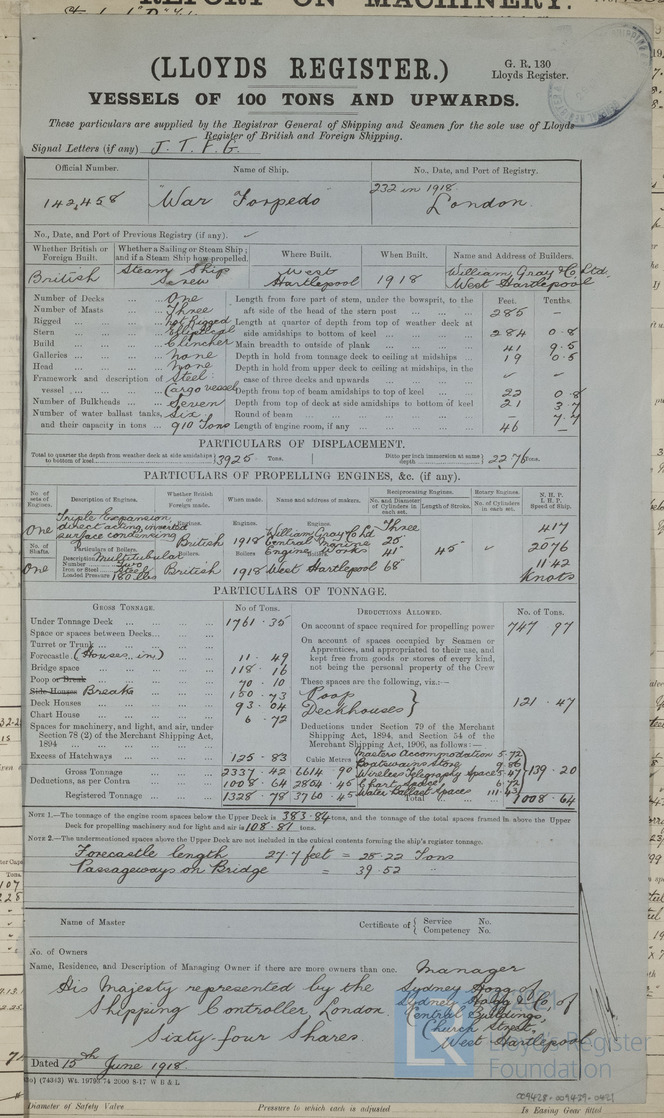 REPORT ON MACHINERY.
(LLOYDS REGISTER.)
G. R. 130
Lloyds Register.
VESSELS OF 100 TONS AND UPWARDS.
These particulars are supplied by the Registrar General of Shipping and Seamen for the sole use of Lloyds
Register of British and Foreign Shipping.
Signal Letters (if any) J. T. F. G.
Official Number. Name of Ship. No., Date, and Port of Registry.
142,458 "War Torpedo" 232 in 1918. London.
No., Date, and Port of Previous Registry (if any).
Whether British or Foreign Built. Whether a Sailing or Steam Ship; and if a Steam Ship how propelled. Where Built. When Built. Name and Address of Builders.
British Steam Ship Screw West Hartlepool 1918 William Gray & Co Ltd. West Hartlepool
Number of Decks ... One
Number of Masts ... Three
Rigged ... not Rigged
Stern ... Elliptical
Build ... Clincher
Galleries ... none
Head ... none
Framework and description of vessel ... Steel: Cargo vessel
Number of Bulkheads ... Seven
Number of water ballast tanks, and their capacity in tons ... Six. 910 Tons
Feet. Tenths.
Length from fore part of stem, under the bowsprit, to the aft side of the head of the stern post 285 –
Length at quarter of depth from top of weather deck at side amidships to bottom of keel 284 0.8
Main breadth to outside of plank 41 9.5
Depth in hold from tonnage deck to ceiling at midships 19 0.5
Depth in hold from upper deck to ceiling at midships, in the case of three decks and upwards
Depth from top of beam amidships to top of keel 22 0.8
Depth from top of deck at side amidships to bottom of keel 21 3.7
Round of beam – 7.7
Length of engine room, if any 46 –
PARTICULARS OF DISPLACEMENT.
Total to quarter the depth from weather deck at side amidships to bottom of keel 3925 Tons. Ditto per inch immersion at same depth 22.76 Tons.
PARTICULARS OF PROPELLING ENGINES, &c. (if any).
No. of sets of Engines. Description of Engines. Whether British or Foreign made. When made. Name and address of makers. Reciprocating Engines. No. and Diameter of Cylinders in each set. Length of Stroke. Rotary Engines. No. of Cylinders in each set. N. H. P. I. H. P. Speed of Ship.
One Triple Expansion direct acting, inverted surface condensing Engines. British Engines. 1918 Engines. William Gray & Co Ltd. Central Marine Engine Works Three 25" 41" 68" 45" 417 2076 11.42 Knots
No. of Shafts. Particulars of Boilers. Boilers. Boilers
One Description Multitubular
Number Two
Iron or Steel Steel
Loaded Pressure 180 lbs British 1918 West Hartlepool
PARTICULARS OF TONNAGE.
GROSS TONNAGE. No of Tons. DEDUCTIONS ALLOWED. No. of Tons.
Under Tonnage Deck 1761.35
Space or spaces between Decks
Turret or Trunk
Forecastle (Houses in) 11.49
Bridge space 118.16
Poop or Break 70.10
Side Houses Breaks 150.73
Deck Houses 93.04
Chart House 6.72
Spaces for machinery, and light, and air, under Section 78 (2) of the Merchant Shipping Act, 1894
Excess of Hatchways 125.83
Cubic Metres
Gross Tonnage 2337.42 6614.90
Deductions, as per Contra 1008.64 2854.45
Registered Tonnage 1328.78 3760.45
On account of space required for propelling power 747 97
On account of spaces occupied by Seamen or Apprentices, and appropriated to their use, and kept free from goods or stores of every kind, not being the personal property of the Crew
These spaces are the following, viz.:—
Poop
Deckhouses } 121.47
Deductions under Section 79 of the Merchant Shipping Act, 1894, and Section 54 of the Merchant Shipping Act, 1906, as follows:—
Masters Accommodation 5.72
Boatswains Store 9.86
Wireless Telegraphy Space 5.47
Chart Space 6.72
Water Ballast Spaces 111.43
139.20
Total 1008.64
NOTE 1.—The tonnage of the engine room spaces below the Upper Deck is 383.84 tons, and the tonnage of the total spaces framed in above the Upper
Deck for propelling machinery and for light and air is 108.81 tons.
NOTE 2.—The undermentioned spaces above the Upper Deck are not included in the cubical contents forming the ship's register tonnage.
Forecastle length 27.7 feet = 25.22 Tons
Passageways on Bridge = 39.52 "
Name of Master Certificate of { Service No. Competency No.
No. of Owners
Name, Residence, and Description of Managing Owner if there are more owners than one.
His Majesty represented by the
Shipping Controller, London.
Sixty-four Shares.
Manager
Sydney Hogg of
Sydney Hogg & Co, of
Central Buildings,
Church Street,
West Hartlepool
Dated 15th June 1918.
(74343) Wt. 19793/74 2000 8-17 W B & L
2021
Lloyd's Register
Foundation
009428-009439-0421
Diameter of Safety Valve Pressure to which each is adjusted Is Easing Gear fitted